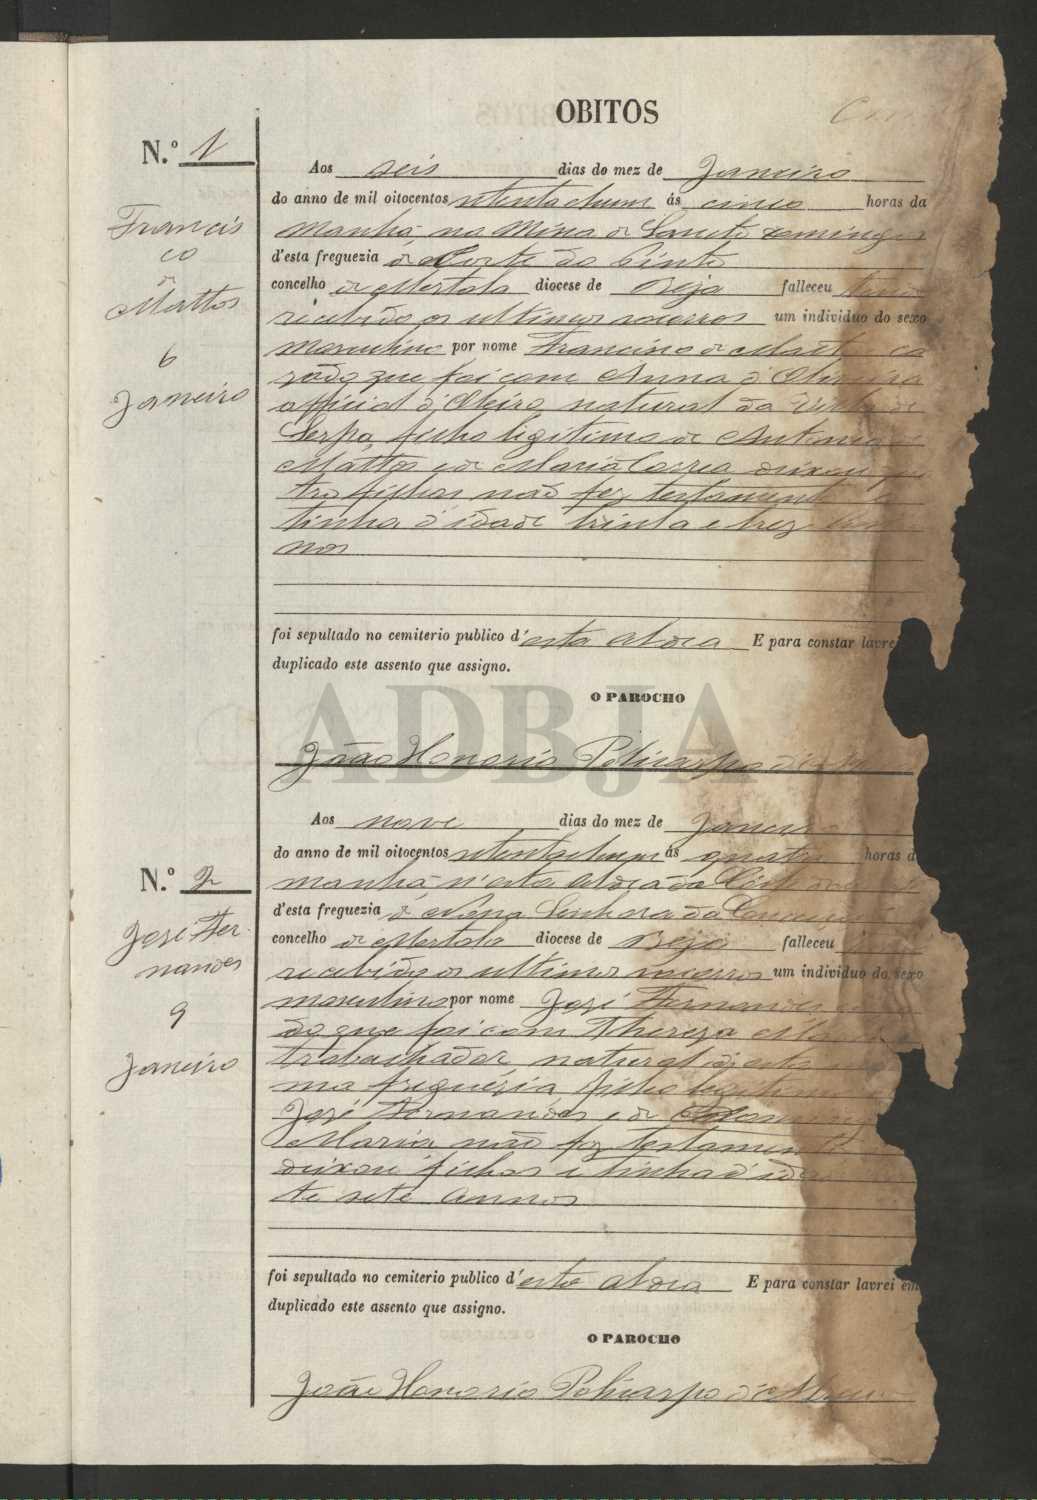 OBITOS
N.º 1
Francis
co
de
Mattos
6
Janeiro
Aos seis dias do mez de Janeiro
do anno de mil oitocentos setenta e hum ás cinco horas da
manhã, na Mina de Sancto Domingos
d'esta freguezia de Corte do Pinto
concelho de Mertola diocese de Beja falleceu tendo
recebido os ultimos socorros um individuo do sexo
masculino por nome Francisco de Matt ca
sado que foi com Anna d'Oliveira
official d'Oleiro, natural da Villa de
Serpa, filho legitimo de Antonio de
Mattos e de Maria Correa deixou
tro filhos não fez testamento e
tinha d'idade trinta e trez
nos
foi sepultado no cemiterio publico d'esta aldea E para constar lavrei
duplicado este assento que assigno.
O PAROCHO
João Honorio Policarpo de
N.º 2
José Fer-
nandes
9
Janeiro
Aos nove dias do mez de Janeiro
do anno de mil oitocentos setenta e hum ás quatro horas d
manhã n'esta aldea da Corte do
d'esta freguezia de Nossa Senhora da Conceição
concelho de Mertola diocese de Beja falleceu
recebido os ultimos socorros um individuo do sexo
masculino por nome José Fernandes
do que foi com Thereza
trabalhador, natural d'esta
ma freguezia, filho legitimo
José Fernandes e de
Maria não fez testamento
deixou filhos e tinha d'ida
te sete annos
foi sepultado no cemiterio publico d'esta aldea E para constar lavrei em
duplicado este assento que assigno.
O PAROCHO
João Honorio Policarpo de
ADBJA